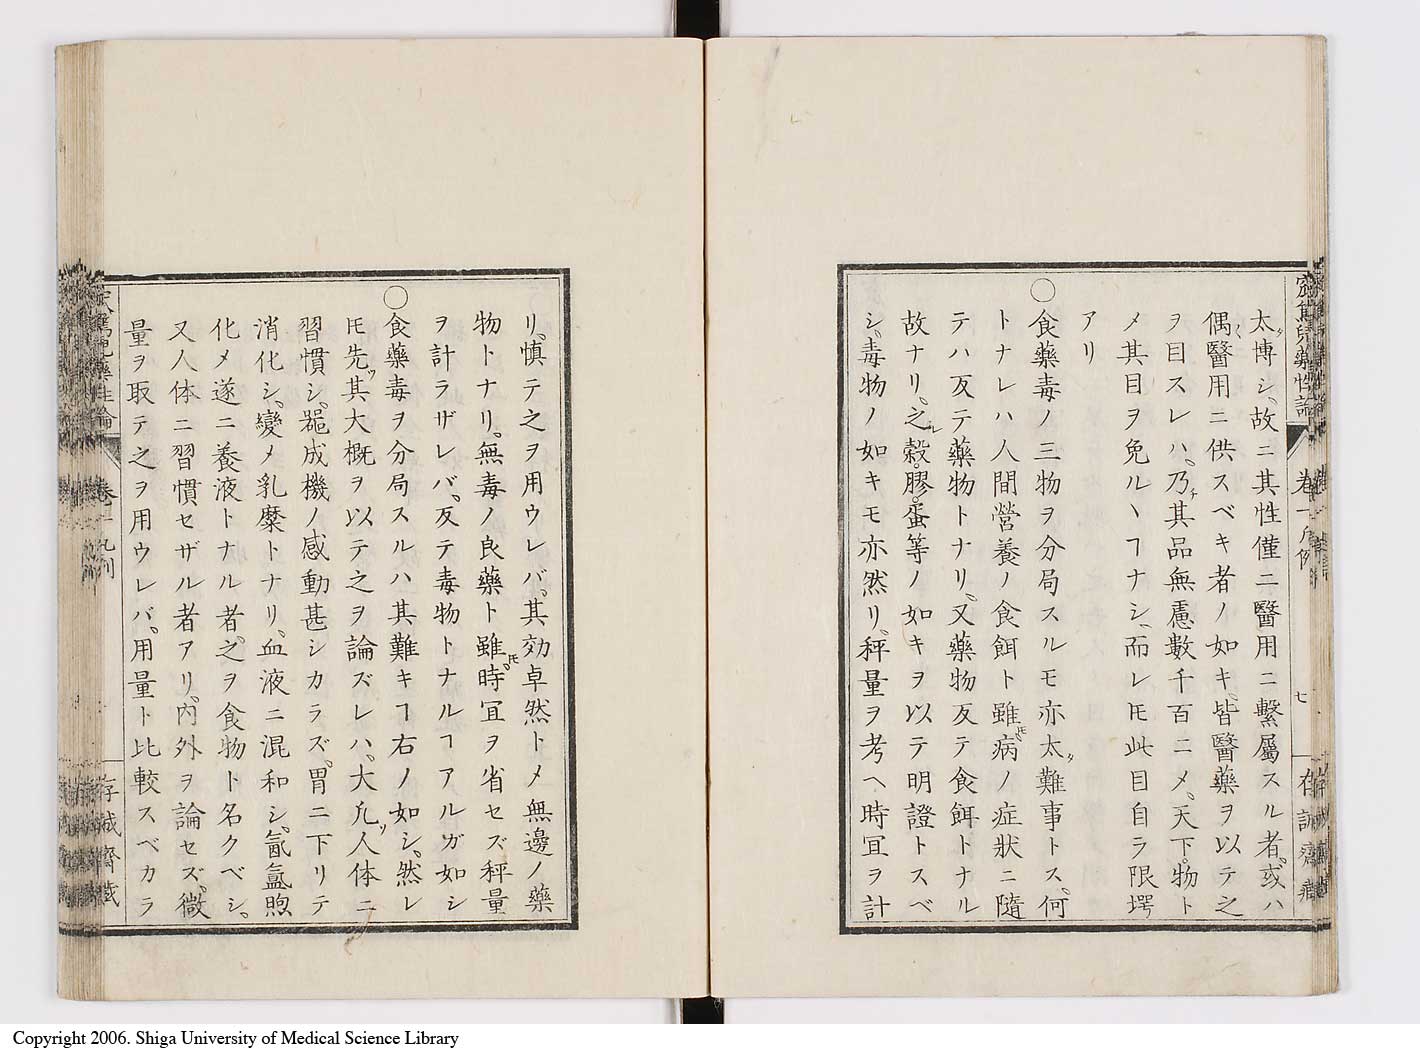 太ダ博シ、故ニ其性僅ニ醫用ニ繫屬スル者、或ハ
偶〻醫用ニ供スベキ者ノ如キ、皆醫藥ヲ以テ之
ヲ目スレハ、乃チ其品無慮數千百ニメ、天下ノ物ト
メ其目ヲ免ルヽヿナシ、而レ𪜈此目自ラ限堮
アリ
○食藥毒ノ三物ヲ分局スルモ亦太ダ難事トス、何
トナレハ人間營養ノ食餌ト雖𪜈病ノ症狀ニ隨
テハ反テ藥物トナリ、又藥物反テ食餌トナル
故ナリ、之レ穀、膠、蛋等ノ如キヲ以テ明證トスベ
シ、毒物ノ如キモ亦然リ、秤量ヲ考ヘ時宜ヲ計
窊篤兒藥性論
卷一凡例
七
存誠齋藏
リ、愼テ之ヲ用ウレバ、其効卓然トメ無邊ノ藥
物トナリ、無毒ノ良藥ト雖𪜈、時宜ヲ省セズ秤量
ヲ計ラザレバ、反テ毒物トナルヿアルガ如シ
○食藥毒ヲ分局スルハ其難キヿ右ノ如シ、然レ
𪜈先ヅ其大概ヲ以テ之ヲ論ズレハ、大凡ソ人体ニ
習慣シ、噐成機ノ感動甚シカラズ、胃ニ下リテ
消化シ、變メ乳糜トナリ、血液ニ混和シ、氤氳煦
化メ遂ニ養液トナル者、之ヲ食物ト名クベシ、
又人体ニ習慣セザル者アリ、內外ヲ論セズ、微
量ヲ取テ之ヲ用ウレバ、用量ト比較スベカラ
窊篤兒藥性論
卷一凡例
存誠齋藏
Copyright 2006. Shiga University of Medical Science Library